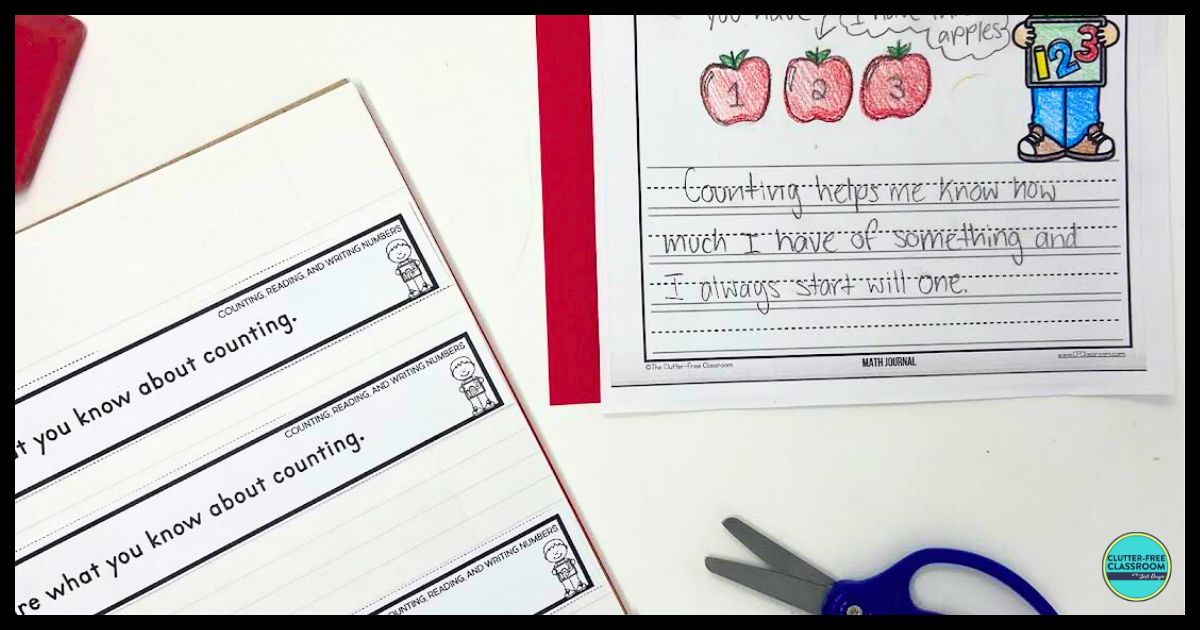 you have
I have
apples
1 2 3
123
Counting helps me know how
much I have of something and
I always start will one.
©The Clutter-Free Classroom
MATH JOURNAL
www.CFClassroom.com
COUNTING, READING, AND WRITING NUMBERS
you know about counting.
COUNTING, READING, AND WRITING NUMBERS
what you know about counting.
COUNTING, READING, AND WRITING NUMBERS
CLUTTER-FREE
CLASSROOM